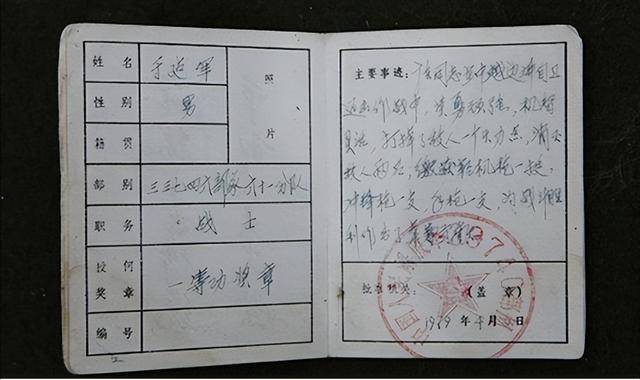 姓名 于延军
照片
性别 男
籍贯
部别 三三七四六部队六十一分队
职务 战士
授何奖章 一等功奖章
编号
2
主要事迹：同志在中越边境自卫
还击作战中，英勇顽强，机智
灵活，打掉了敌人一个火力点，消灭
敌人两名，缴获轻机枪一挺，
冲锋枪一支，手枪一支，为战斗胜
利作出了
批准机关：（盖章）
1979年 月 日